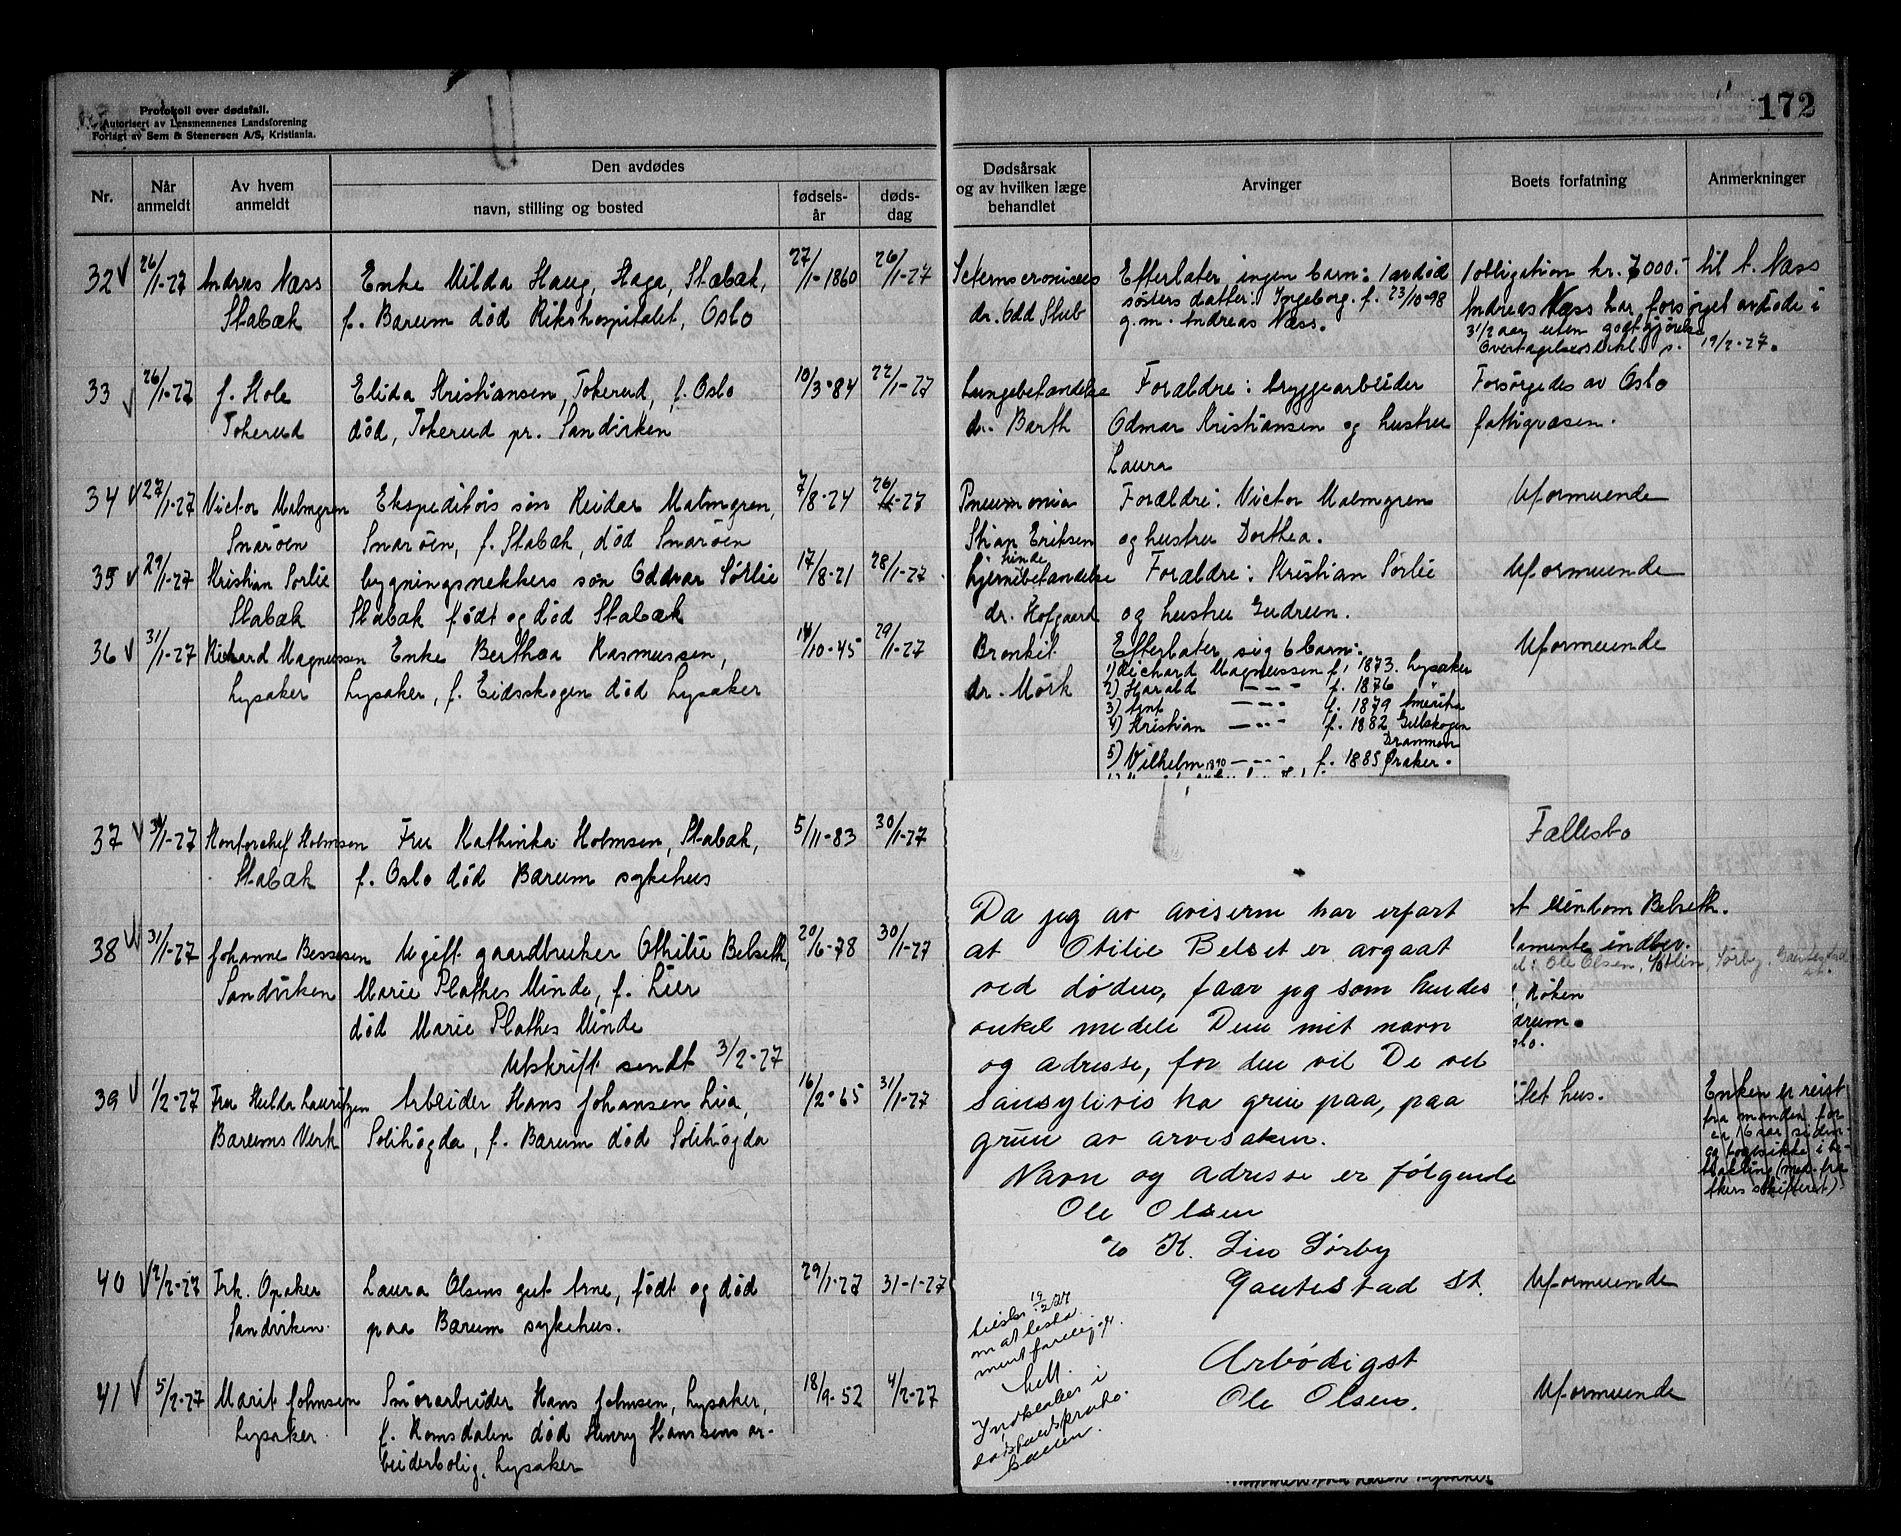 Protokoll over dødsfall.
Autorisert av Lensmennenes Landsforening
Forlagt av Sem & Stenersen A/S, Kristiania.
172
Nr.
Når anmeldt
Av hvem anmeldt
Den avdødes
navn, stilling og bosted
fødsels-år
døds-dag
Dødsårsak og av hvilken læge behandlet
Arvinger
Boets forfatning
Anmerkninger
32 26/1-27 Andreas Næss Enke Milda Haug, Haga, Stabæk, 27/1-1860 26/1-27
Stabæk f. Bærum død Rikshospitalet, Oslo
dr. Odd Stub
Efterlater ingen barn: 1 avdød
søsters datter: Ingeborg. f. 23/10-98
g.m. Andreas Næss.
1 obligation kr. 7000.- til A. Næss
Andreas Næss har forsørget avdøde i
3 1/2 aar uten godtgjørelse
19/2-27.
33 26/1-27 J. Hole Elida Kristiansen, Tokerud, f. Oslo 10/3-84 22/1-27
Tokerud død, Tokerud pr. Sandviken
Lungebetændelse Forældre: bryggearbeider Forsørgedes av Oslo
dr. Barth Odmar Kristiansen og hustru fattigvæsen.
Laura
34 27/1-27 Victor Malmgren Ekspeditørs søn Reidar Malmgren, 7/8-24 26/1-27
Snarøen Snarøen, f. Stabæk, død Snarøen
Pneumonia Forældre: Victor Malmgren Uformuende
Stian Eriksen og hustru Dorthea.
35 29/1-27 Kristian Sørlie bygningssnekkers søn Oddvar Sørlie 17/8-21 28/1-27
Stabæk Stabæk født og død Stabæk
hinde
hjernebetændelse Forældre: Kristian Sørlie Uformuende
dr. Hofgaard og hustru Gudrun.
36 31/1-27 Richard Magnussen Enke Berthea Rasmussen, 14/10-45 29/1-27
Lysaker Lysaker, f. Eidsskogen død Lysaker
Bronkit Efterlater sig 6 barn: Uformuende
dr. Mørk
1) Richard Magnussen f. 1873. Lysaker
2) Harald --- f. 1876 "
3) Arnt --- f. 1879 Amerika
4) Kristian --- f. 1882 Gulskogen
Drammen
5) Vilhelm --- f. 1885 Øraker.
37 31/1-27 Kontorchef Holmsen Fru Kathinka Holmsen, Stabæk, 5/11-83 30/1-27
Stabæk f. Oslo død Bærum sykehus
Fællesbo
38 31/1-27 Johanne Bessesen Ugift gaardbruker Othilie Belseth, 20/6-78 30/1-27
Sandviken Marie Plathes Minde, f. Lier
død Marie Plathes Minde
Utskrift sendt 3/2-27
eiendom Belseth.
Ole Olsen,
Røken
39 1/2-27 Fru Hulda Lauritzen Arbeider Hans Johansen Lia, 16/2-65 31/1-27
Bærums Verk Solihøgda, f. Bærum død Solihøgda
hus.
Enken er reist
fra manden for
ca. 16 aar siden
40 2/2-27 Frk. Opaker Laura Olsens gut Arne, født og død 29/1-27 31-1-27
Sandviken paa Bærum sykehus.
Uformuende
41 5/2-27 Marit Johnsen Smørarbeider Hans Johnsen, Lysaker, 18/9-52 4/2-27
Lysaker f. Romsdalen død Henry Hanssens ar-
beiderbolig, Lysaker
Uformuende
Da jeg av aviserne har erfart
at Otilie Belset er avgaat
ved døden, faar jeg som hendes
onkel medele Dem mit navn
og adresse, for den vil De vel
sansylivis ha grun paa, paa
grun av arvesaken.
Navn og adresse er følgende
Ole Olsen
c/o K. Lin Sørby
Gautestad st.
Arbødigst
Ole Olsen.
19/2 27
om at testa-
ment foreligger.
Indheftes i
dødsfaldsproto-